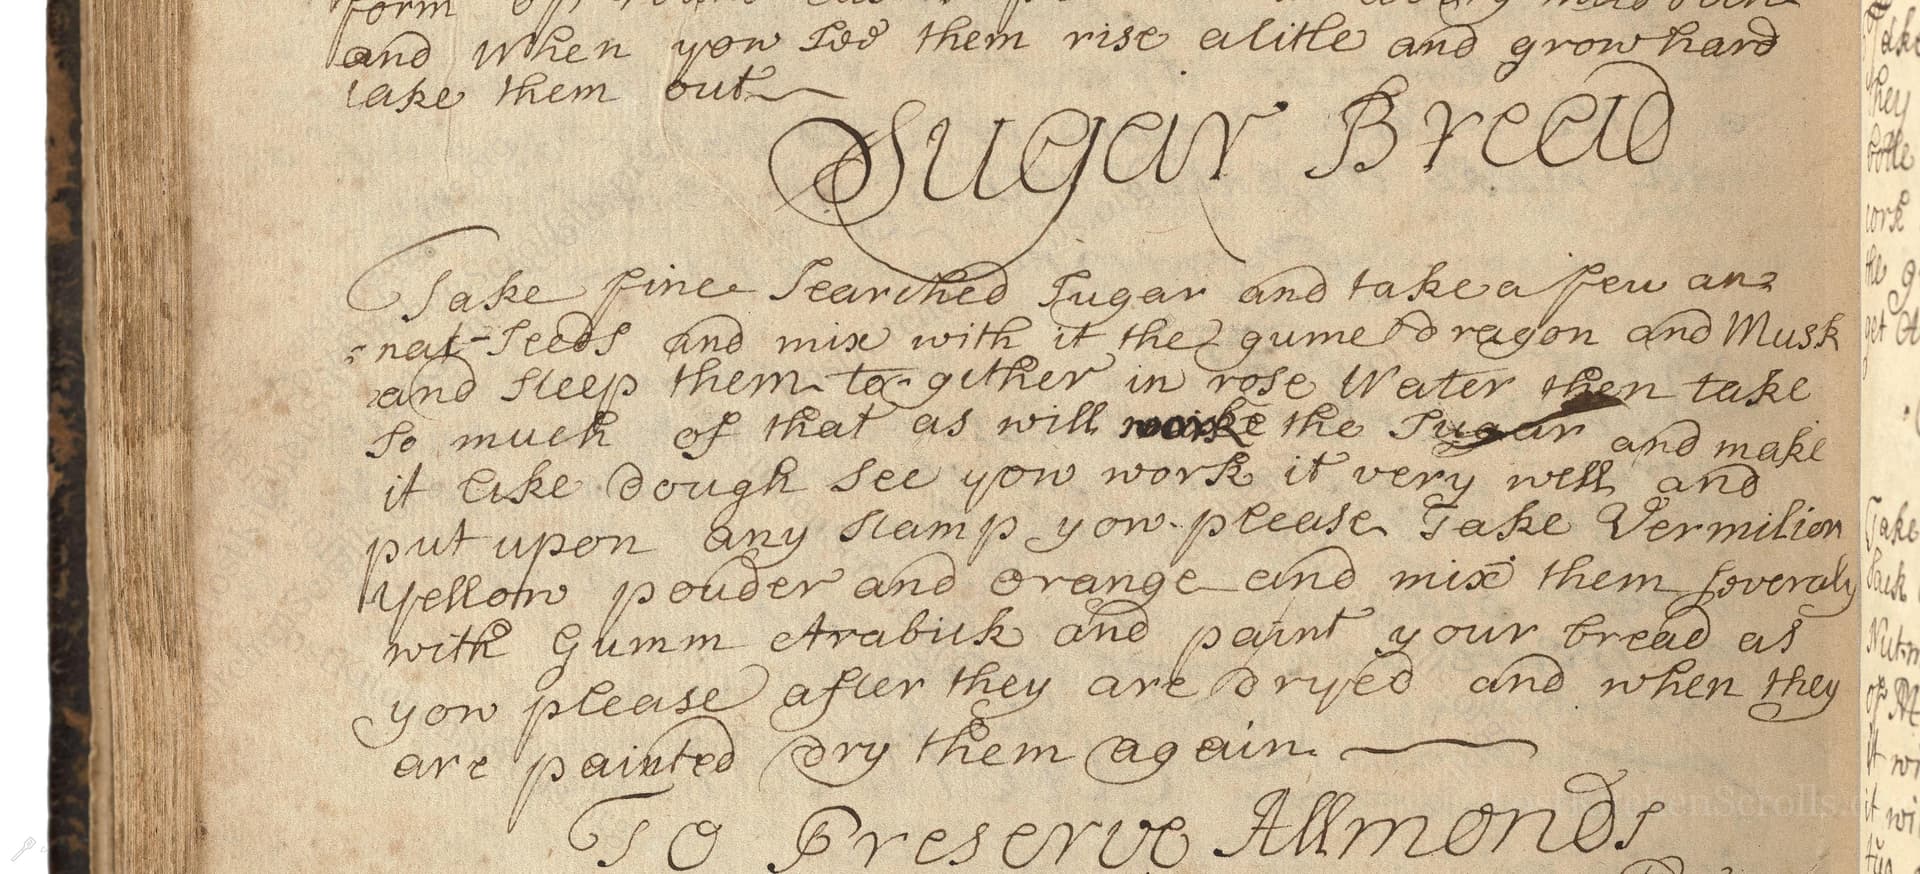 and When yow See them rise alitle and grow hard
take them out
Sugar Bread
Take fine Searched Sugar and take a few an=
=nat-Seeds and mix with it the gume dragon and Musk
and steep them to=gither in rose Water then take
so much of that as will worke the Sugar and make
it like dough see yow work it very well and
put upon any stamp yow please Take Vermilion
yellow pouder and orange and mix them severaly
with Gumm Arabick and paint your bread as
yow please after they are dryed and when they
are painted dry them again
To Preserve Allmonds